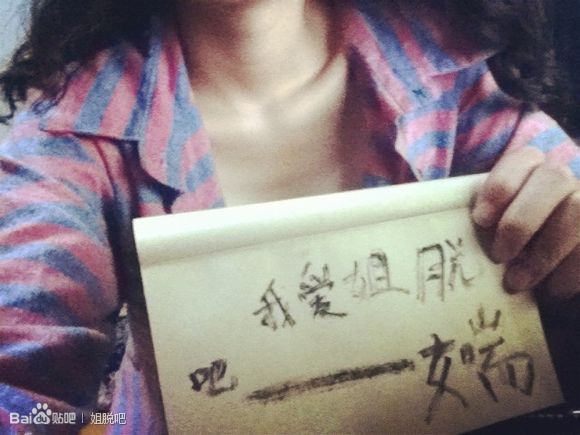 我爱姐脱
吧——女喘
Bai du 贴吧 | 姐脱吧